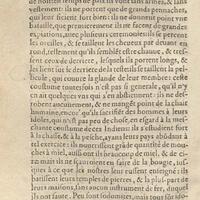 de nostres temps de paix ils vont sans armes, & sans
vestement: ils ne portent que de grands pennaches,
qui leur séient fort bien: ils ne donnent point vne
bataille, que premierement ils ne facent de grandes
expiations, auec plusieurs ceremonies: ils se percent
les oreilles, & se taillent les cheueux par deuant en
rond, tellement qu'ils semblét estre chauue, & tref
sent ceux de derriere, lesquels ils portent longs, &
les lient sur le derriere de la teste: ils se taillent la pel-
licule, qui couure la glande de leur membre: ceste
coustume toutesfois n'est pas si generale, qu'il n'y
en ait quelques vns qui s'en abstiennent: ils ne des-
robent aucunement, & ne mangét point de la chair
humaine, encor' qu'ils sacrifiét des hommes à leurs
idoles, qui n'est pas peu de chose, en esgard à la mes-
chante coustume de ces Indiens: ils s'estudient fort
à la chasse, & à la pesche, ayans leurs pays abódans à
tel exercice: ils nourrissent grãde quantité de mou-
ches à miel, aussi ont ils beaucoup de miel, & de ci-
re mais ils ne sçauoient en faire de la bougie, ius-
ques à ce que les nostres leur eussent enseigné: ils
bastissent leurs temples de pierres, & la plus part de
leurs maisons, sans aucun instrument de fer, duquel
ils n'ont point. Peu sont sodomites, mais tous sont